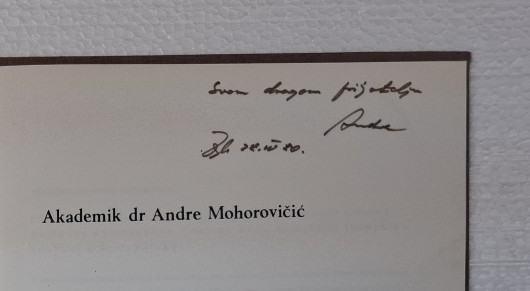 Svom dragom prijatelju
Andre
Zgb 28.IV 80.
Akademik dr Andre Mohorovičić